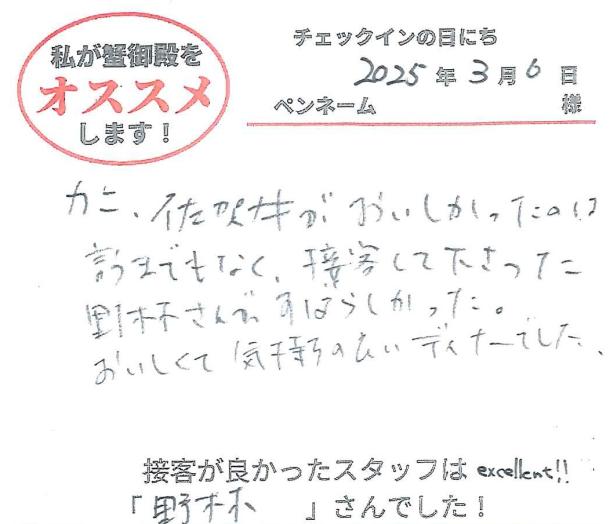 私が蟹御殿を
オススメ
します!
チェックインの日にち
2025年3月6日
ペンネーム 様
カニ、佐賀牛がおいしかったのは
言うまでもなく、接客して下さった
野林さんがすばらしかった。
おいしくて気持の良いディナーでした。
接客が良かったスタッフは excellent!!
「野林」さんでした!